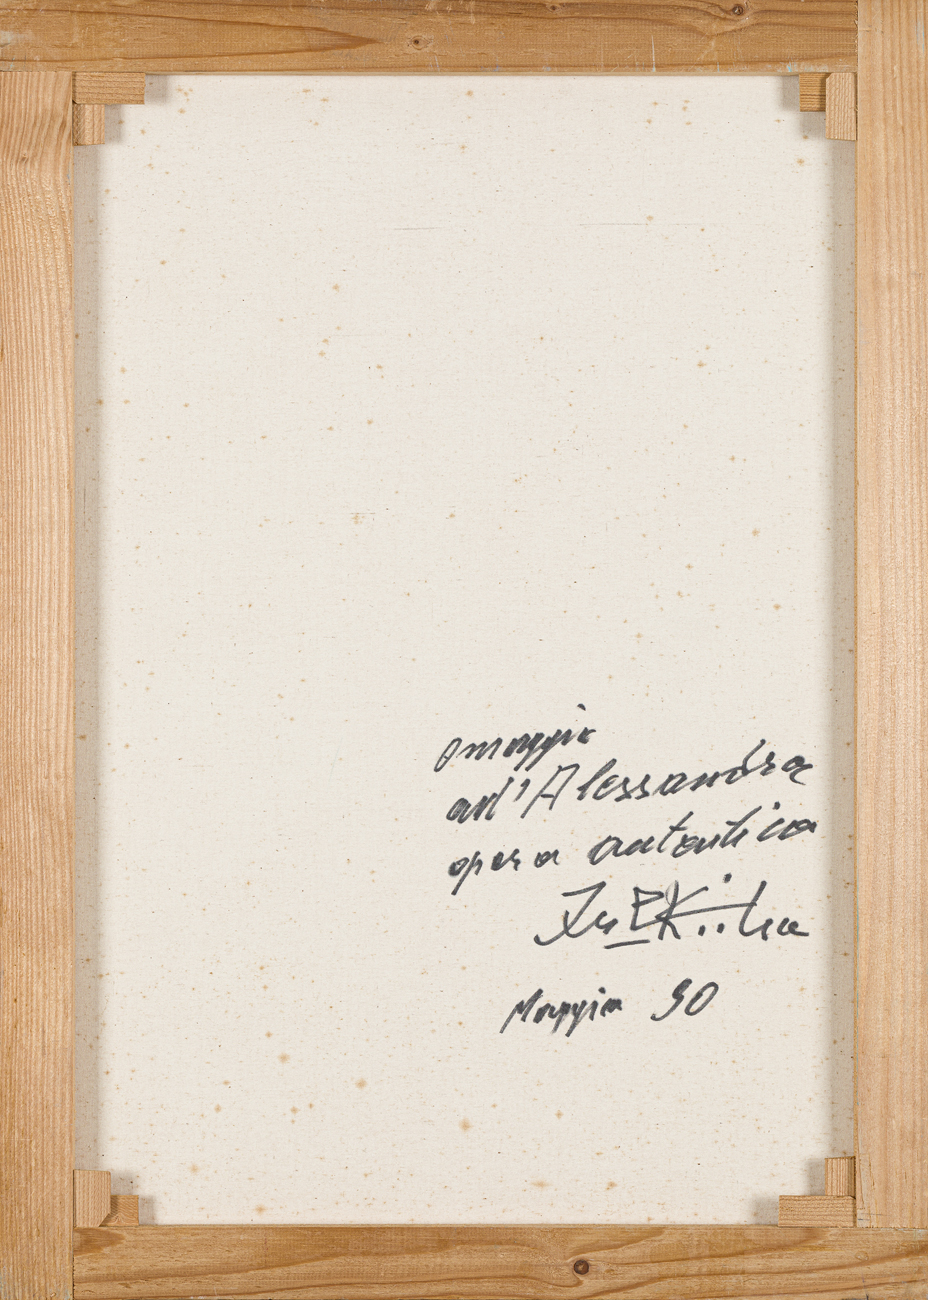 omaggio
ad'Alessandra
opera autentica
Maggio 90